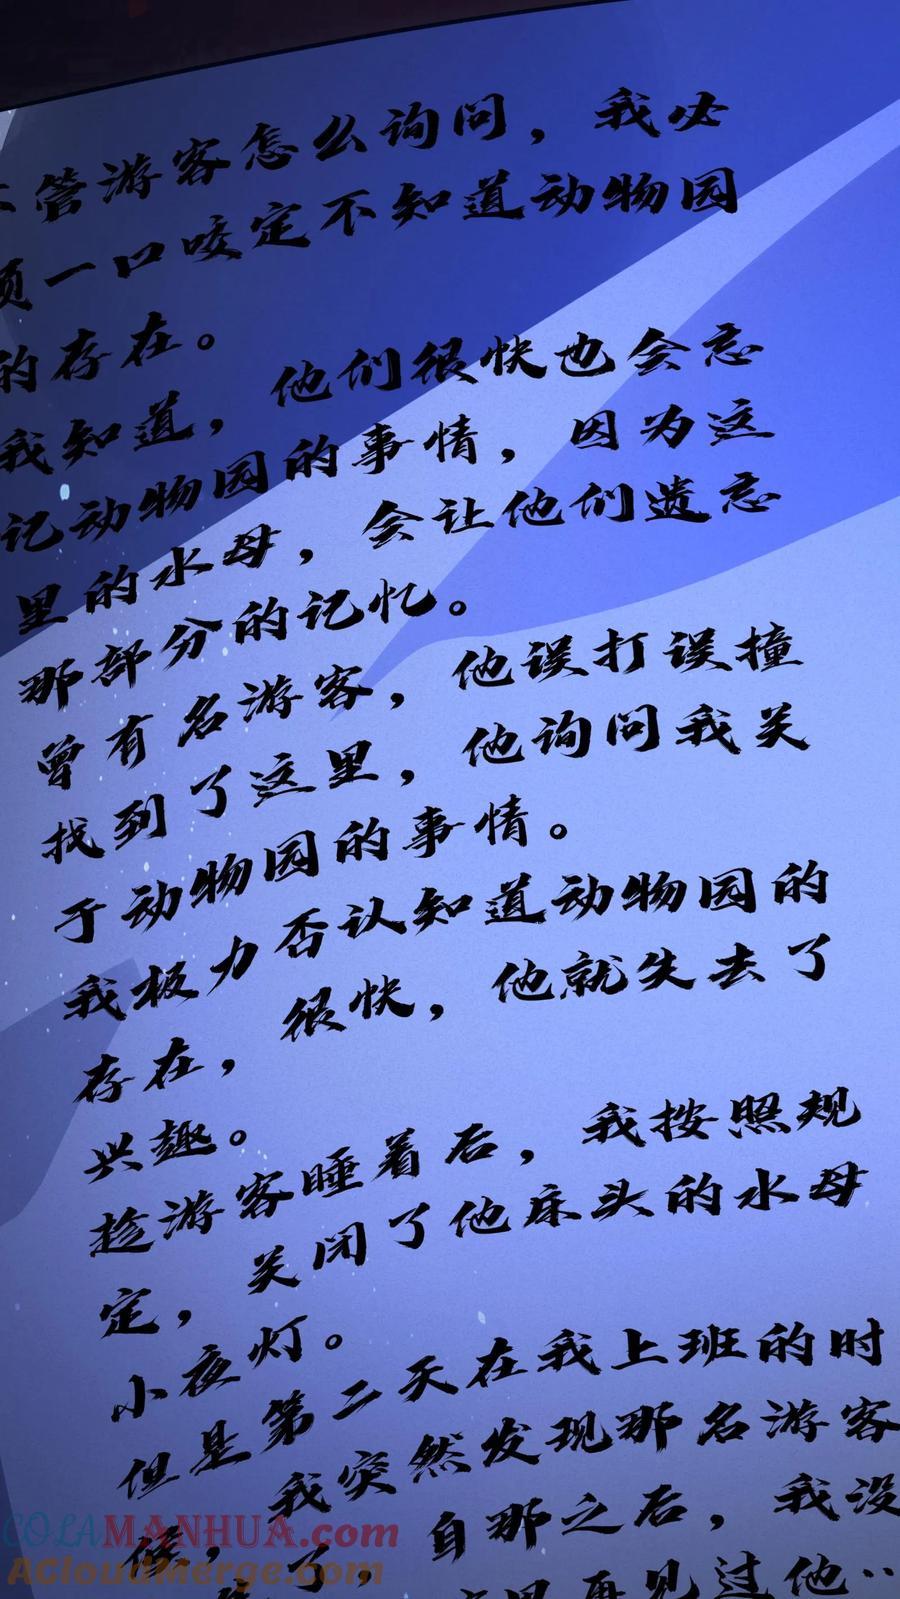 不管游客怎么询问，我必
须一口咬定不知道动物园
的存在。
我知道，他们很快也会忘
记动物园的事情，因为这
里的水母，会让他们遗忘
那部分的记忆。
曾有名游客，他误打误撞
找到了这里，他询问我关
于动物园的事情。
我极力否认知道动物园的
存在，很快，他就失去了
兴趣。
趁游客睡着后，我按照规
定，关闭了他床头的水母
小夜灯。
但是第二天在我上班的时
候，我突然发现那名游客
了，自那之后，我没
再见过他…
COLAMANHUA.com
ACloudMerge.com